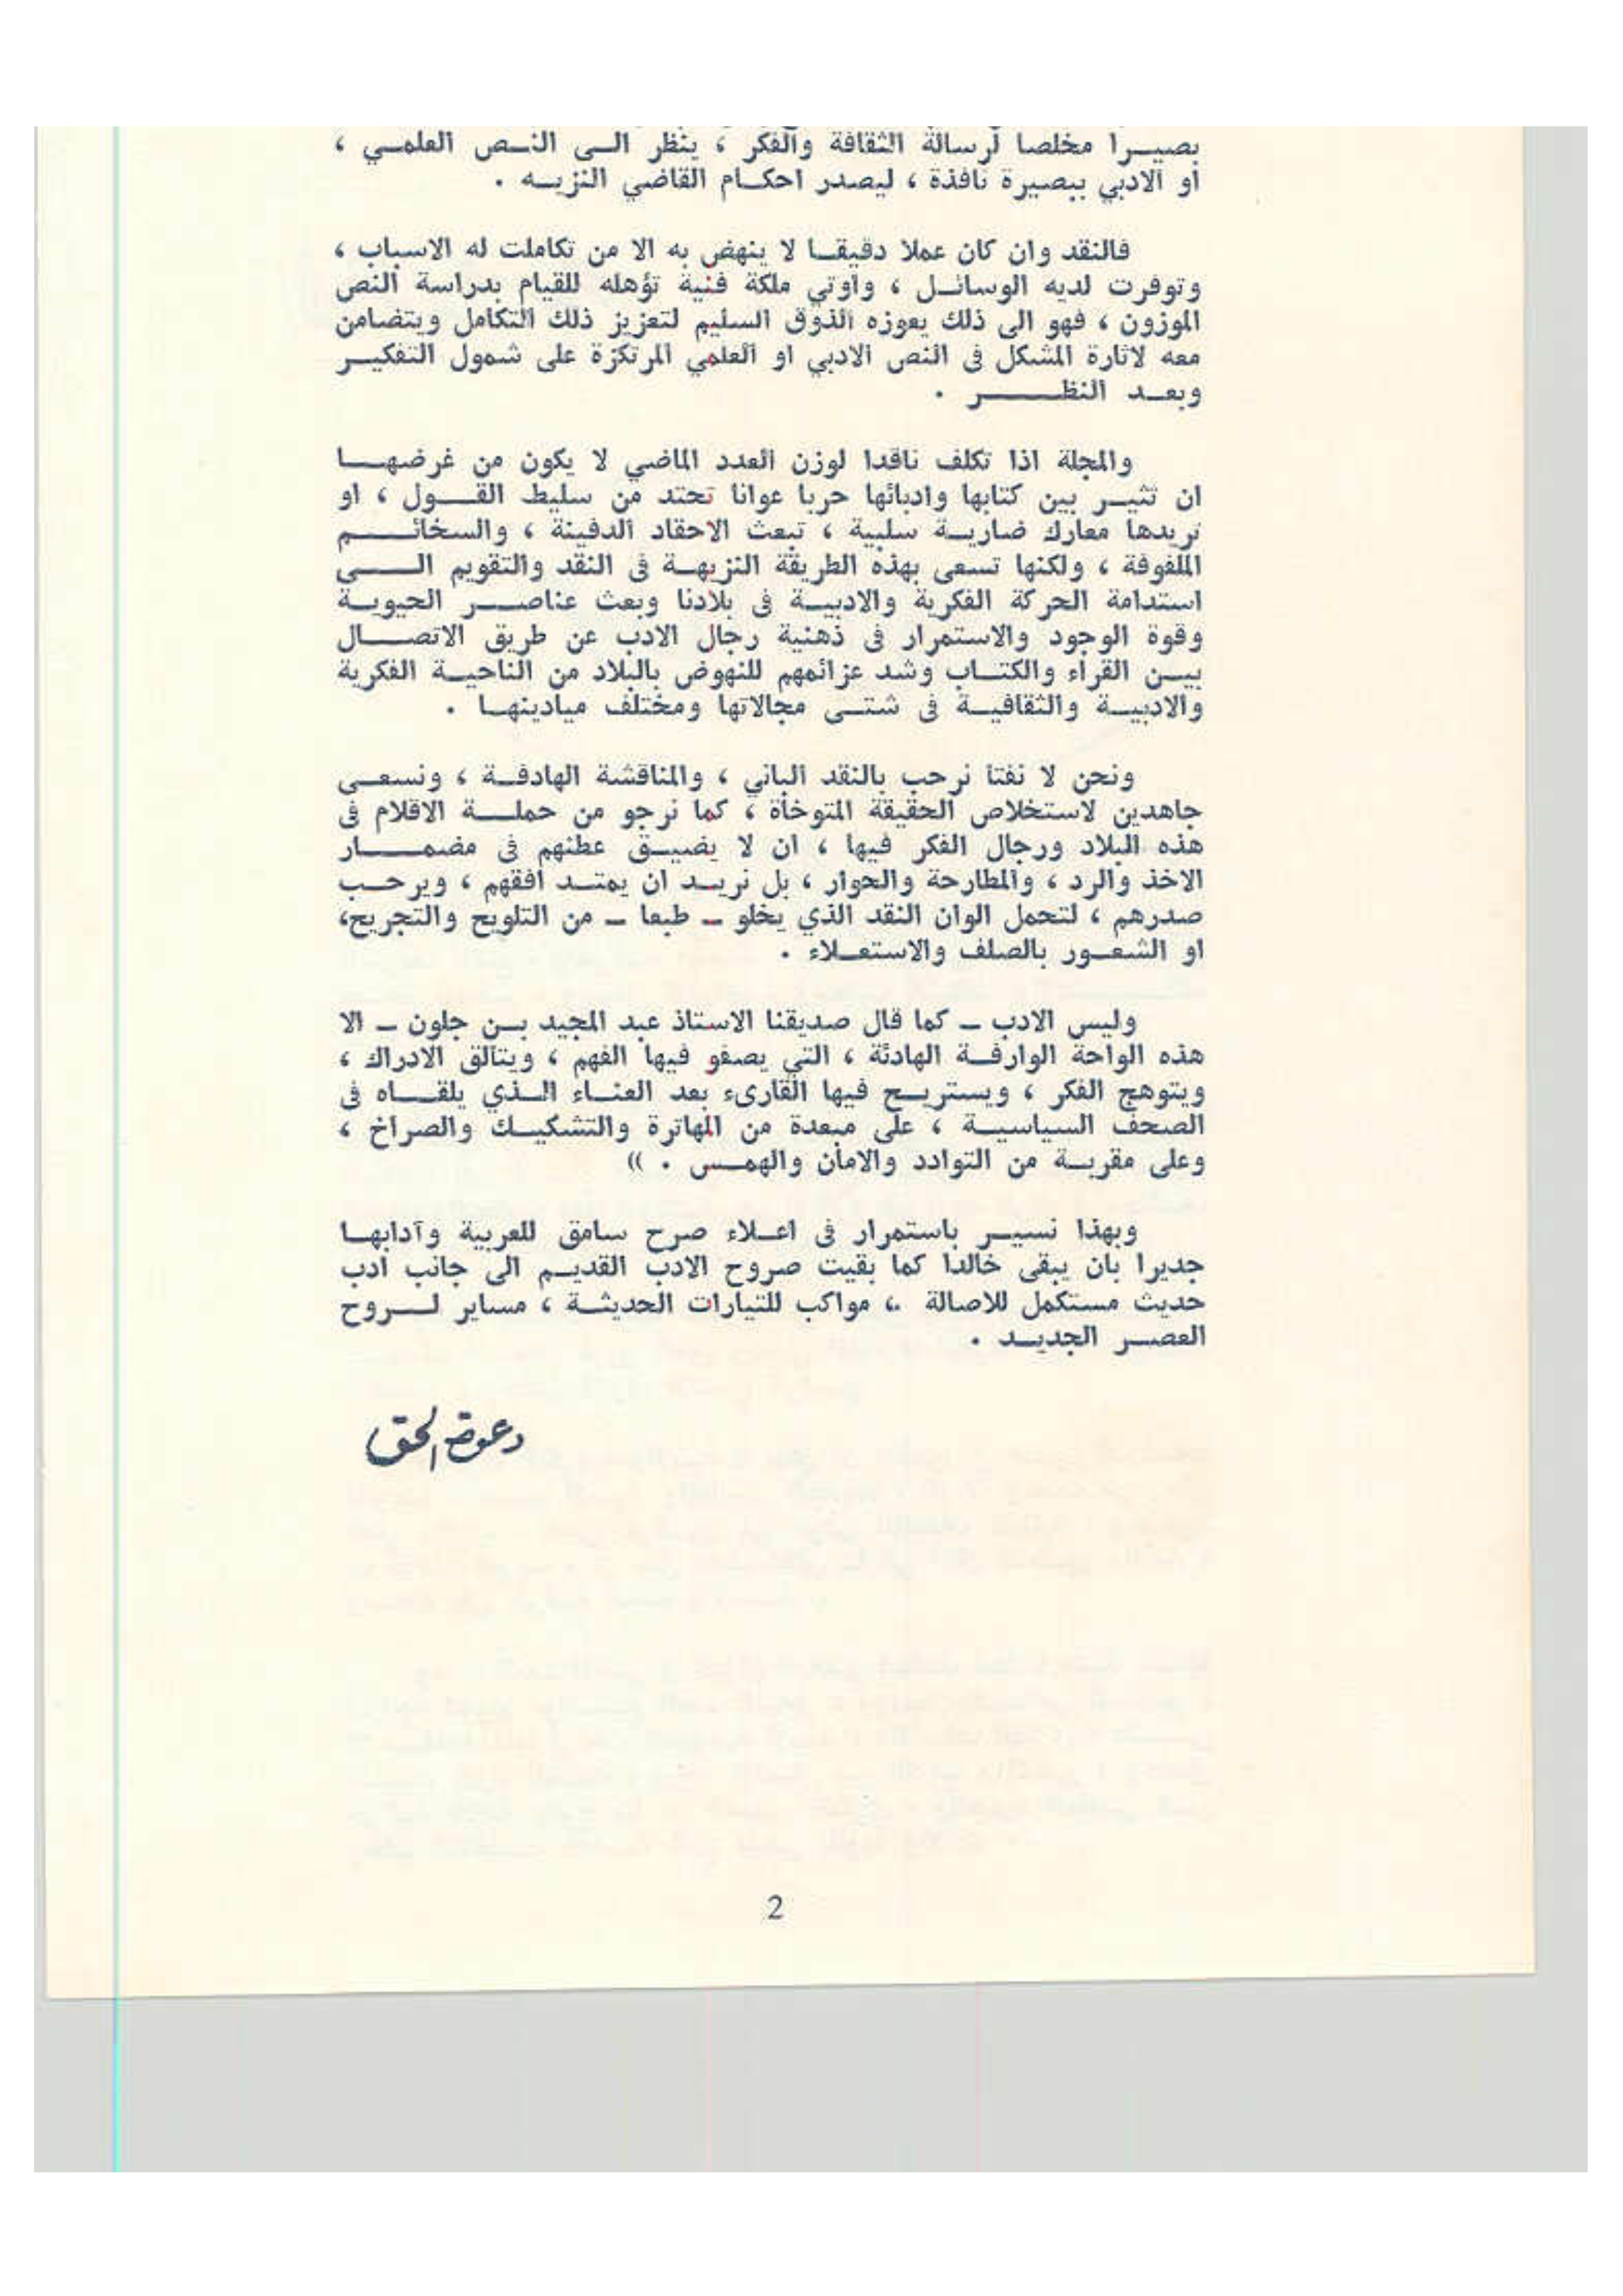 بصيرا مخلصا لرسالة الثقافة والفكر ، ينظر الى النص العلمي ،
او الادبي ببصيرة نافذة ، ليصدر احكام القاضي النزيه .
فالنقد وان كان عملا دقيقا لا ينهض به الا من تكاملت له الاسباب ،
وتوفرت لديه الوسائل ، واوتي ملكة فنية تؤهله للقيام بدراسة النص
الموزون ، فهو الى ذلك يعوزه الذوق السليم لتعزيز ذلك التكامل ويتضامن
معه لاثارة المشكل فى النص الادبي او العلمي المرتكزة على شمول التفكير
وبعد النظر .
والمجلة اذا تكلف ناقدا لوزن العدد الماضي لا يكون من غرضها
ان تثير بين كتابها وادبائها حربا عوانا تحتد من سليط القول ، او
تريدها معارك ضارية سلبية ، تبعث الاحقاد الدفينة ، والسخائم
الملفوفة ، ولكنها تسعى بهذه الطريقة النزيهة فى النقد والتقويم الى
استدامة الحركة الفكرية والادبية فى بلادنا وبعث عناصر الحيوية
وقوة الوجود والاستمرار فى ذهنية رجال الادب عن طريق الاتصال
بين القراء والكتاب وشد عزائمهم للنهوض بالبلاد من الناحية الفكرية
والادبية والثقافية فى شتى مجالاتها ومختلف ميادينها .
ونحن لا نفتا نرحب بالنقد الباني ، والمناقشة الهادفة ، ونسعى
جاهدين لاستخلاص الحقيقة المتوخاة ، كما نرجو من حملة الاقلام فى
هذه البلاد ورجال الفكر فيها ، ان لا يضيق عطنهم فى مضمار
الاخذ والرد ، والمطارحة والحوار ، بل نريد ان يمتد افقهم ، ويرحب
صدرهم ، لتحمل الوان النقد الذي يخلو ـ طبعا ـ من التلويح والتجريح،
او الشعور بالصلف والاستعلاء .
وليس الادب ـ كما قال صديقنا الاستاذ عبد المجيد بن جلون ـ الا
هذه الواحة الوارفة الهادئة ، التي يصفو فيها الفهم ، ويتالق الادراك ،
ويتوهج الفكر ، ويستريح فيها القارىء بعد العناء الذي يلقاه فى
الصحف السياسية ، على مبعدة من المهاترة والتشكيك والصراخ ،
وعلى مقربة من التوادد والامان والهمس . ))
وبهذا نسير باستمرار فى اعلاء صرح سامق للعربية وآدابها
جديرا بان يبقى خالدا كما بقيت صروح الادب القديم الى جانب ادب
حديث مستكمل للاصالة ، مواكب للتيارات الحديثة ، مساير لروح
العصر الجديد .
دعوة الحق
2